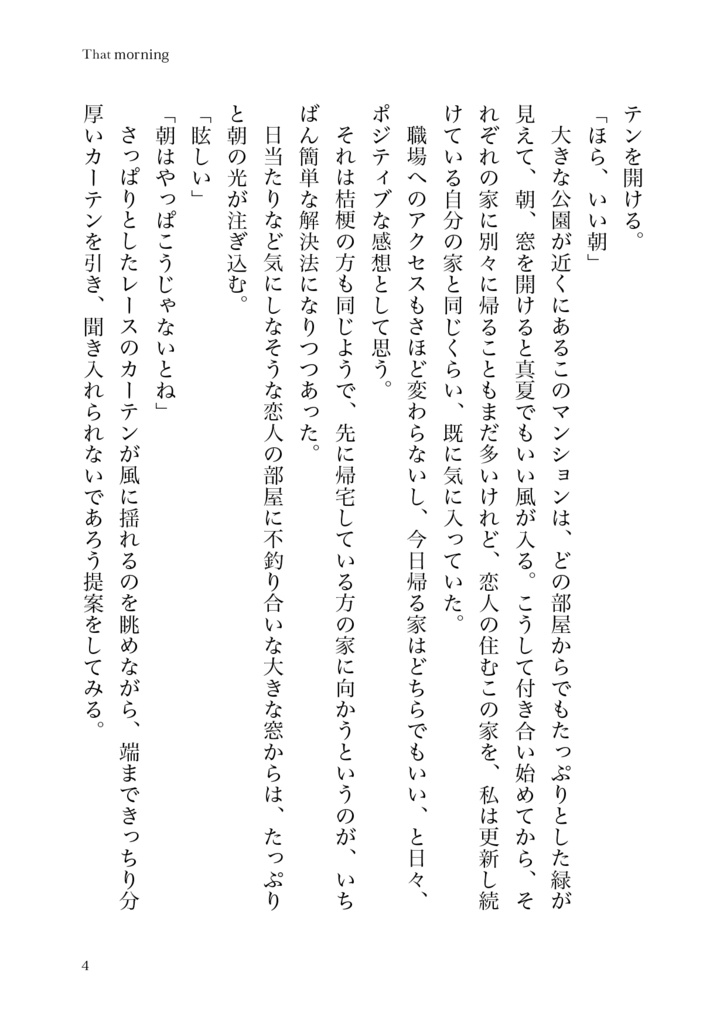 That morning
テンを開ける。
「ほら、いい朝」
大きな公園が近くにあるこのマンションは、どの部屋からでもたっぷりとした緑が
見えて、朝、窓を開けると真夏でもいい風が入る。こうして付き合い始めてから、そ
れぞれの家に別々に帰ることもまだ多いけれど、恋人の住むこの家を、私は更新し続
けている自分の家と同じくらい、既に気に入っていた。
職場へのアクセスもさほど変わらないし、今日帰る家はどちらでもいい、と日々、
ポジティブな感想として思う。
それは桔梗の方も同じようで、先に帰宅している方の家に向かうというのが、いち
ばん簡単な解決法になりつつあった。
日当たりなど気にしなそうな恋人の部屋に不釣り合いな大きな窓からは、たっぷり
と朝の光が注ぎ込む。
「眩しい」
「朝はやっぱこうじゃないとね」
さっぱりとしたレースのカーテンが風に揺れるのを眺めながら、端まできっちり分
厚いカーテンを引き、聞き入れられないであろう提案をしてみる。
4